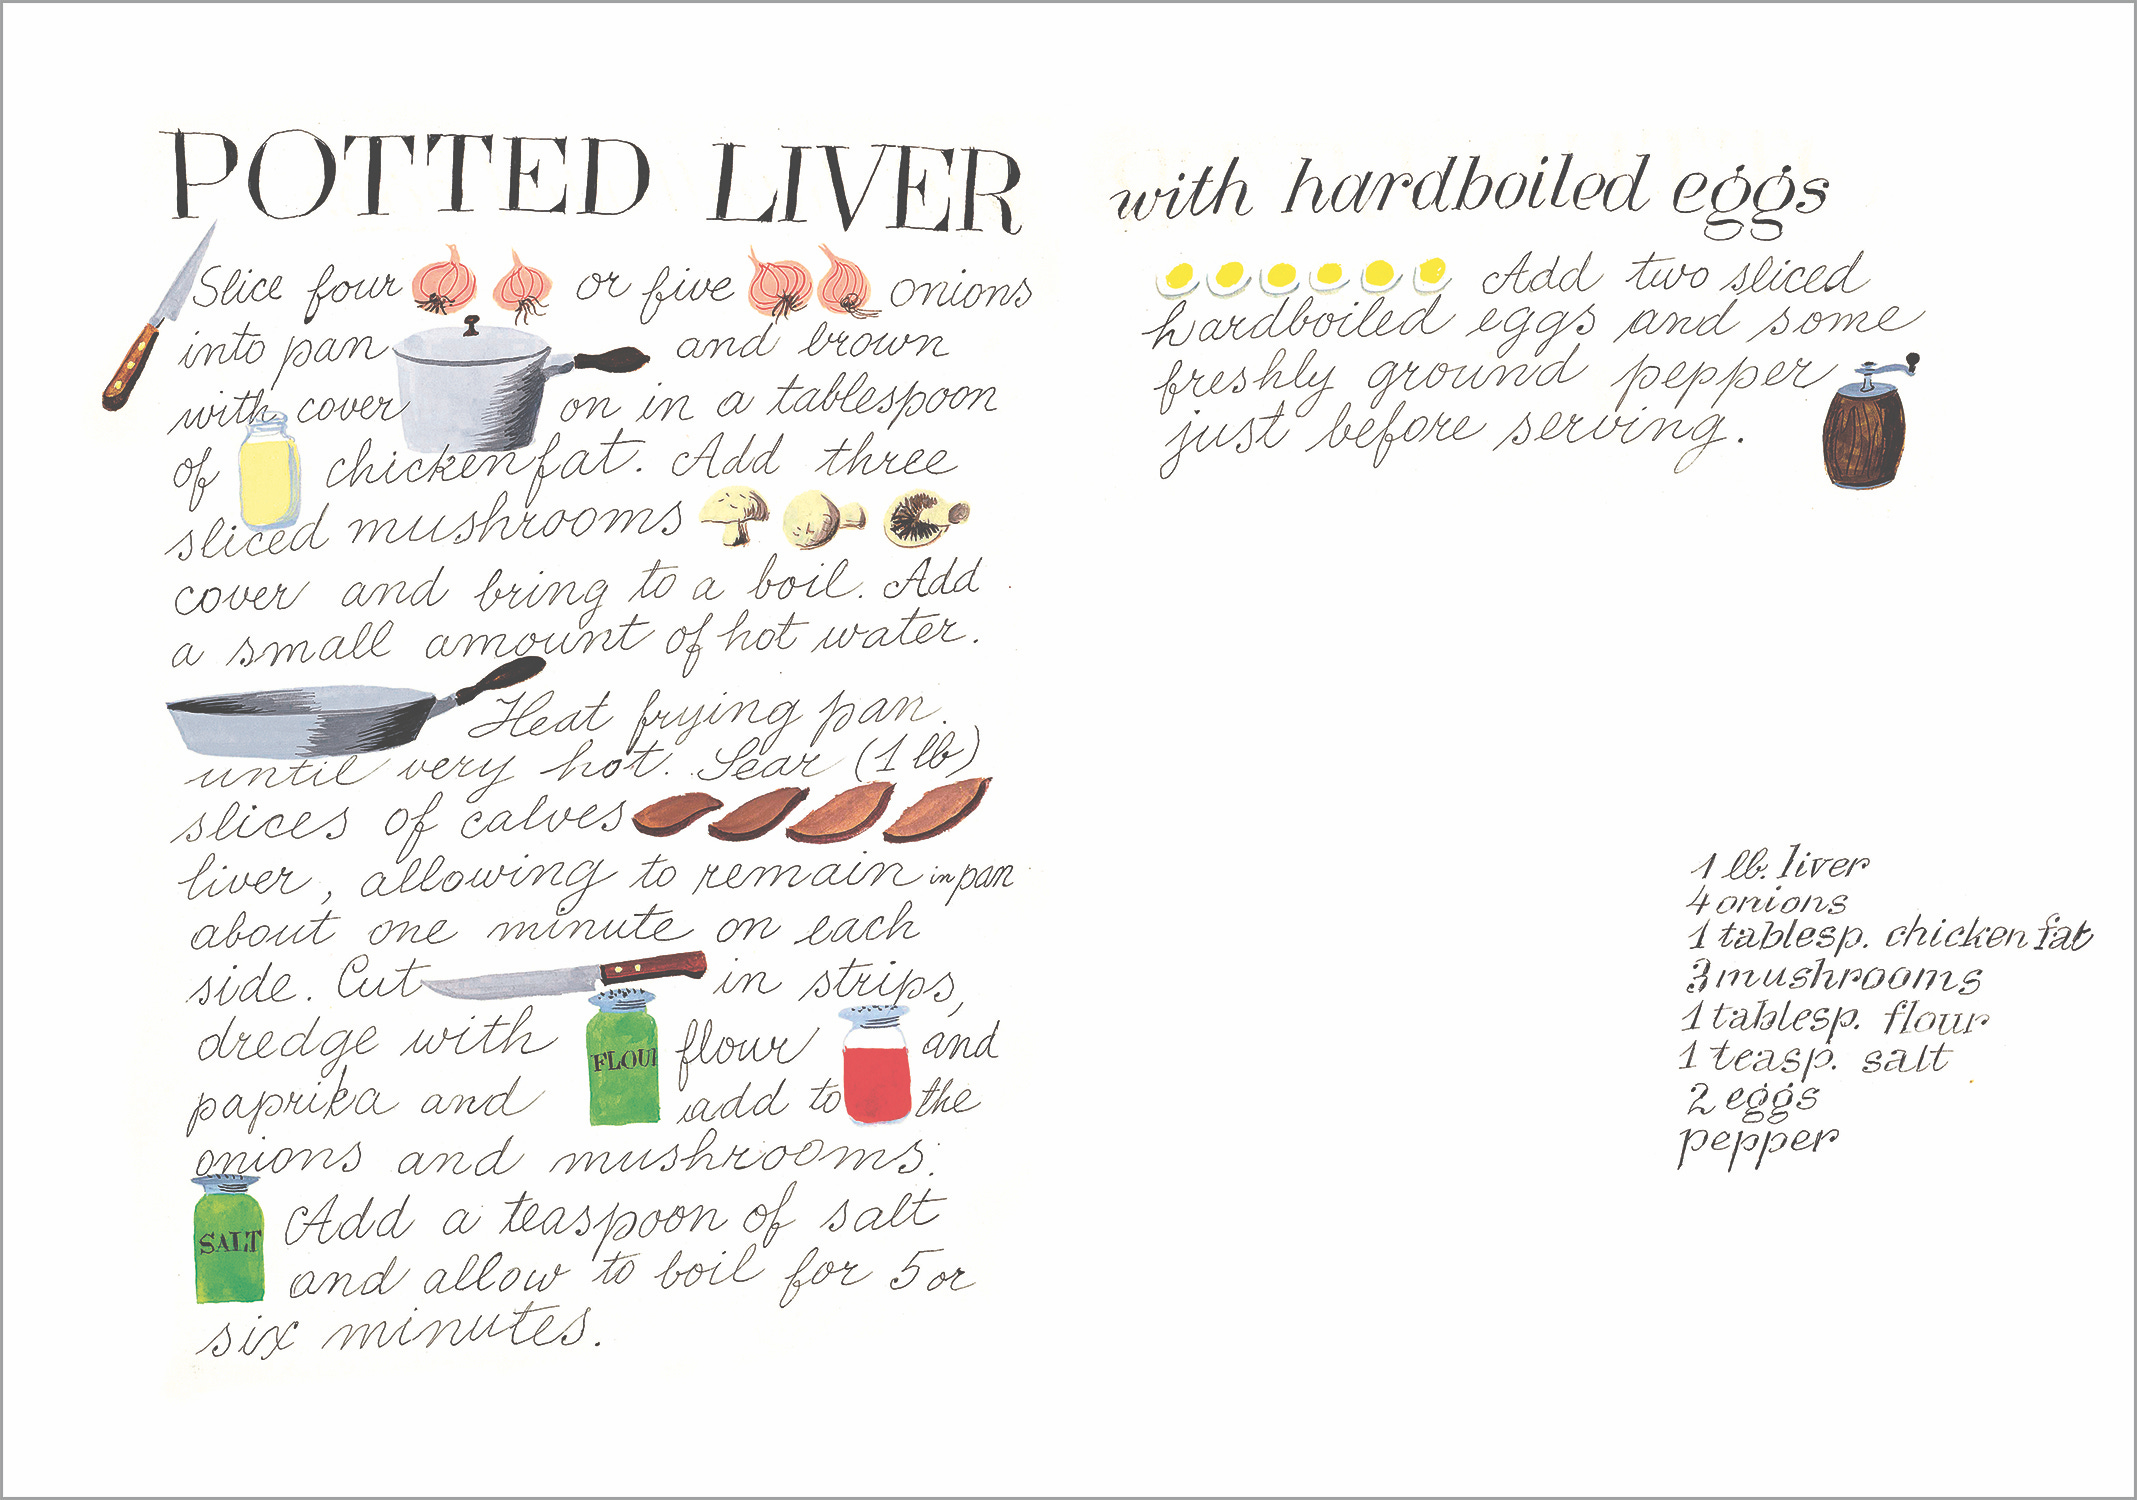 POTTED LIVER
Slice four or five onions
into pan and brown
with cover on in a tablespoon
of chicken fat. Add three
sliced mushrooms
cover and bring to a boil. Add
a small amount of hot water.
Heat frying pan
until very hot. Sear (1 lb)
slices of calves
liver, allowing to remain in pan
about one minute on each
side. Cut in strips,
dredge with flour and
FLOUR
paprika and add to the
onions and mushrooms.
SALT
Add a teaspoon of salt
and allow to boil for 5 or
six minutes.
with hardboiled eggs
Add two sliced
hardboiled eggs and some
freshly ground pepper
just before serving.
1 lb. liver
4 onions
1 tablesp. chicken fat
3 mushrooms
1 tablesp. flour
1 teasp. salt
2 eggs
pepper